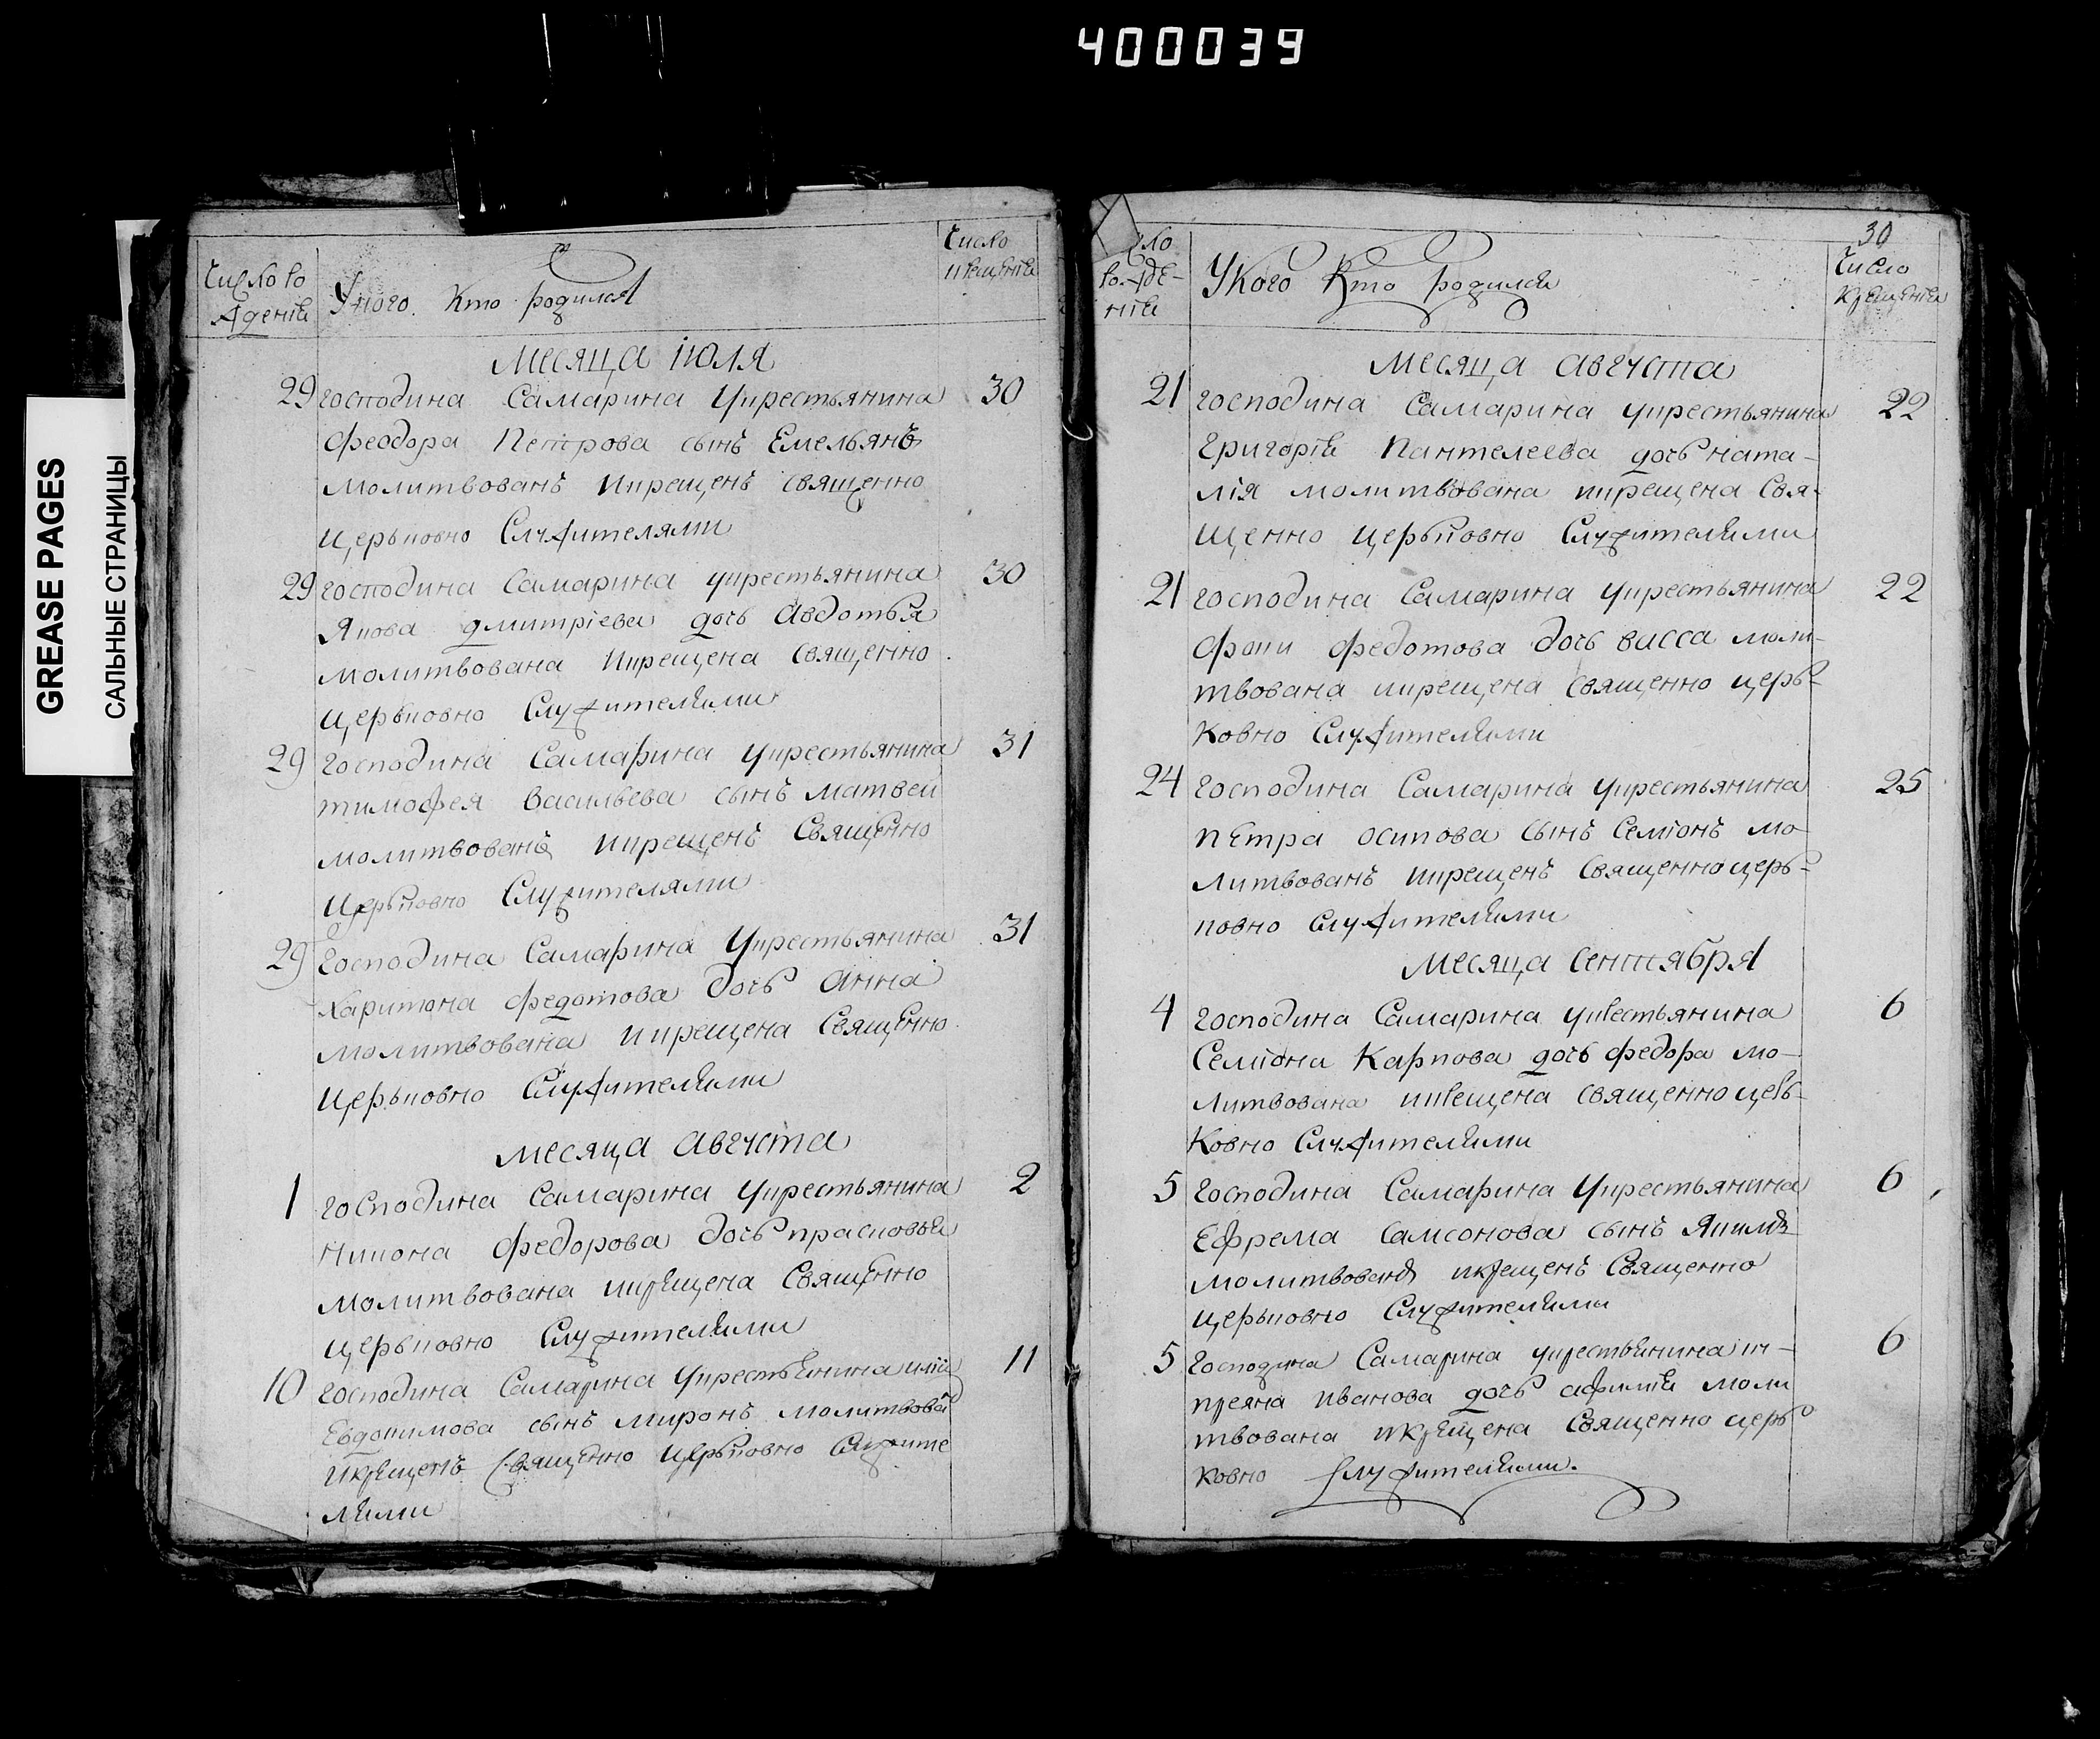 400039
GREASE PAGES
САЛЬНЫЕ СТРАНИЦЫ
Число ро
ждения
У кого кто родился
Число
крещения
Месяца июля
29 господина Самарина укрестьянина 30
Феодора Петрова сынъ Емельянъ
молитвованъ икрещенъ священно
церьковно служителями
29 господина Самарина укрестьянина 30
Якова Дмитрiева дочь Авдотья
молитвована икрещена священно
церьковно служителями
29 господина Самарина укрестьянина 31
Тимофея Васильева сынъ Матвеи
молитвованъ икрещенъ священно
церьковно служителями
29 господина Самарина укрестьянина 31
Харитона Федотова дочь Анна
молитвована икрещена священно
церьковно служителями
месяца августа
1 господина Самарина укрестьянина 2
Никона Федорова дочь Прасковья
молитвована икрещена священно
церьковно служителями
10 господина Самарина укрестьянина илiи 11
Евдокимова сынъ Миронъ молитвова
икрещенъ священно церьковно служите
лями
30
рожде-
нiя
У кого кто родился
Число
крещенiя
Месяца августа
21 господина Самарина укрестьянина 22
Григорiя Пантелеева дочь ната-
лiя молитвована икрещена свя-
щенно церьковно служителями
21 господина Самарина укрестьянина 22
Фоки Федотова дочь васса моли-
твована икрещена священно церь-
ковно служителями
24 господина Самарина укрестьянина 25
Петра Осипова сынъ Семiонъ мо-
литвованъ икрещенъ священно церь-
ковно служителями
Месяца сентября
4 господина Самарина укрестьянина 6
Семiона Карпова дочь федора мо-
литвована икрещена священно церь-
ковно служителями
5 господина Самарина укрестьянина 6
Ефрема Самсонова сынъ Якимъ
молитвованъ икрещенъ священно
церьковно служителями
5 господина Самарина укрестьянина ки- 6
преяна Иванова дочь афимiя моли
твована икрещена священно церь
ковно служителями.